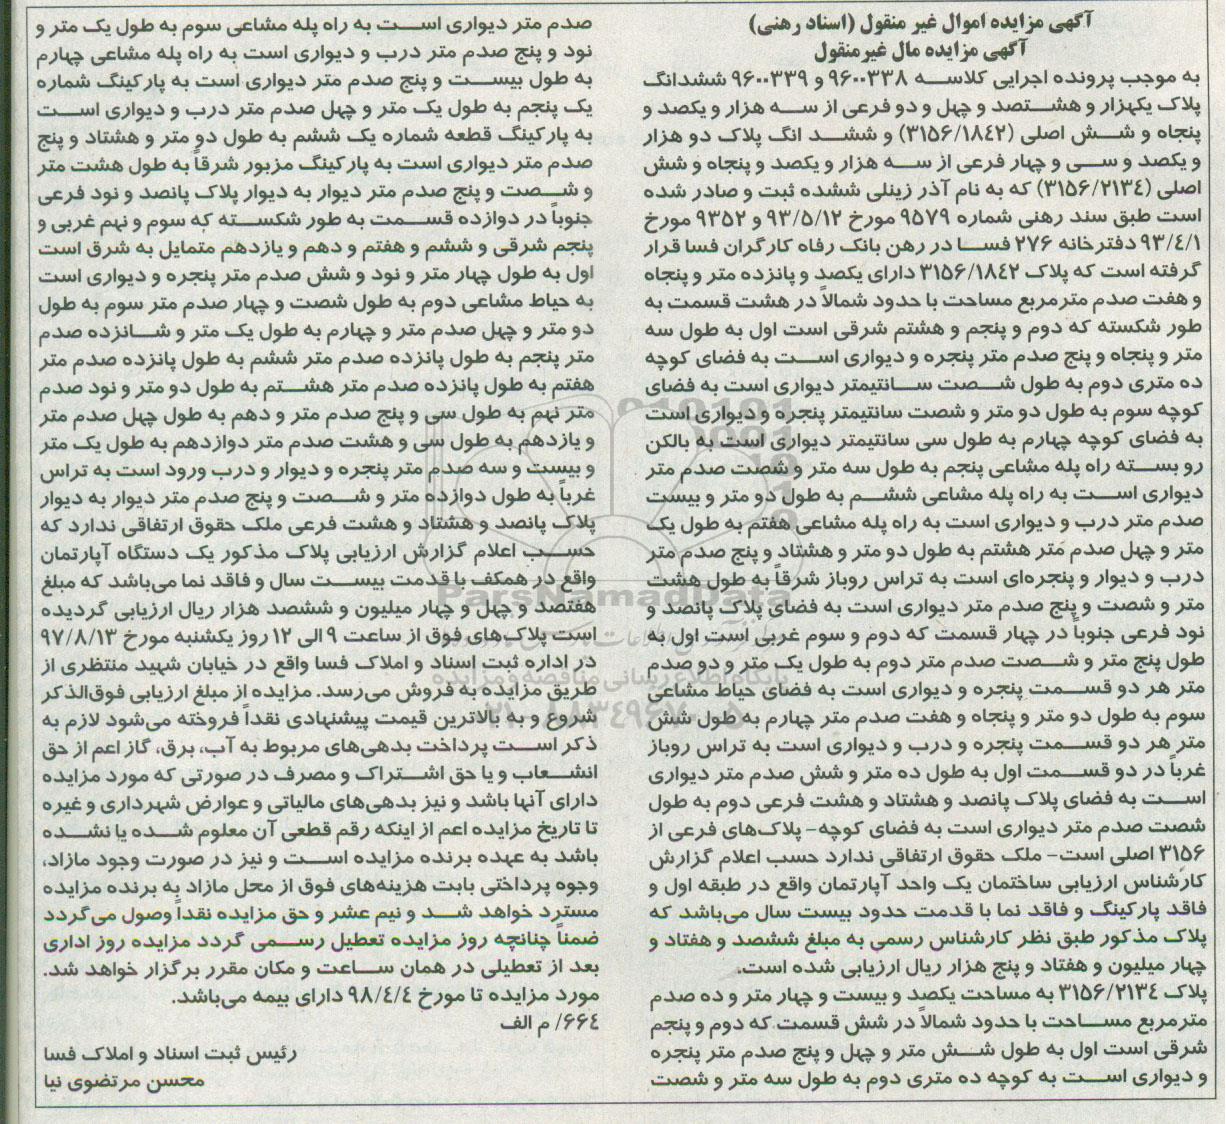 آگهی مزایده اموال غیر منقول (اسناد رهنی)
آگهی مزایده مال غیرمنقول
به موجب پرونده اجرایی کلاسه ۹۶۰۰۳۳۸ و ۹۶۰۰۳۳۹ ششدانگ
پلاک یکهزار و هشتصد و چهل و دو فرعی از سه هزار و یکصد و
پنجاه و شش اصلی (۳۱۵۶/۱۸٤۲) و ششد انگ پلاک دو هزار
و یکصد و سی و چهار فرعی از سه هزار و یکصد و پنجاه و شش
اصلی (۳۱۵۶/۲۱۳٤) که به نام آذر زینلی ششده ثبت و صادر شده
است طبق سند رهنی شماره ۹۵۷۹ مورخ ۹۳/۵/۱۲ و ۹۳۵۲ مورخ
۹۳/٤/۱ دفترخانه ۲۷۶ فسا در رهن بانک رفاه کارگران فسا قرار
گرفته است که پلاک ۳۱۵۶/۱۸٤۲ دارای یکصد و پانزده متر و پنجاه
و هفت صدم مترمربع مساحت با حدود شمالاً در هشت قسمت به
طور شکسته که دوم و پنجم و هشتم شرقی است اول به طول سه
متر و پنجاه و پنج صدم متر پنجره و دیواری است به فضای کوچه
ده متری دوم به طول شصت سانتیمتر دیواری است به فضای
کوچه سوم به طول دو متر و شصت سانتیمتر پنجره و دیواری است
به فضای کوچه چهارم به طول سی سانتیمتر دیواری است به بالکن
رو بسته راه پله مشاعی پنجم به طول سه متر و شصت صدم متر
دیواری است به راه پله مشاعی ششم به طول دو متر و بیست
صدم متر درب و دیواری است به راه پله مشاعی هفتم به طول یک
متر و چهل صدم متر هشتم به طول دو متر و هشتاد و پنج صدم متر
درب و دیوار و پنجره‌ای است به تراس روباز شرقاً به طول هشت
متر و شصت و پنج صدم متر دیواری است به فضای پلاک پانصد و
نود فرعی جنوباً در چهار قسمت که دوم و سوم غربی است اول به
طول پنج متر و شصت صدم متر دوم به طول یک متر و دو صدم
متر هر دو قسمت پنجره و دیواری است به فضای حیاط مشاعی
سوم به طول دو متر و پنجاه و هفت صدم متر چهارم به طول شش
متر هر دو قسمت پنجره و درب و دیواری است به تراس روباز
غرباً در دو قسمت اول به طول ده متر و شش صدم متر دیواری
است به فضای پلاک پانصد و هشتاد و هشت فرعی دوم به طول
شصت صدم متر دیواری است به فضای کوچه- پلاک‌های فرعی از
۳۱۵۶ اصلی است- ملک حقوق ارتفاقی ندارد حسب اعلام گزارش
کارشناس ارزیابی ساختمان یک واحد آپارتمان واقع در طبقه اول و
فاقد پارکینگ و فاقد نما با قدمت حدود بیست سال می‌باشد که
پلاک مذکور طبق نظر کارشناس رسمی به مبلغ ششصد و هفتاد و
چهار میلیون و هفتاد و پنج هزار ریال ارزیابی شده است.
پلاک ۳۱۵۶/۲۱۳٤ به مساحت یکصد و بیست و چهار متر و ده صدم
مترمربع مساحت با حدود شمالاً در شش قسمت که دوم و پنجم
شرقی است اول به طول شش متر و چهل و پنج صدم متر پنجره
و دیواری است به کوچه ده متری دوم به طول سه متر و شصت
صدم متر دیواری است به راه پله مشاعی سوم به طول یک متر و
نود و پنج صدم متر درب و دیواری است به راه پله مشاعی چهارم
به طول بیست و پنج صدم متر دیواری است به پارکینگ شماره
یک پنجم به طول یک متر و چهل صدم متر درب و دیواری است
به پارکینگ قطعه شماره یک ششم به طول دو متر و هشتاد و پنج
صدم متر دیواری است به پارکینگ مزبور شرقاً به طول هشت متر
و شصت و پنج صدم متر دیوار به دیوار پلاک پانصد و نود فرعی
جنوباً در دوازده قسمت به طور شکسته که سوم و نهم غربی و
پنجم شرقی و ششم و هفتم و دهم و یازدهم متمایل به شرق است
اول به طول چهار متر و نود و شش صدم متر پنجره و دیواری است
به حیاط مشاعی دوم به طول شصت و چهار صدم متر سوم به طول
دو متر و چهل صدم متر و چهارم به طول یک متر و شانزده صدم
متر پنجم به طول پانزده صدم متر ششم به طول پانزده صدم متر
هفتم به طول پانزده صدم متر هشتم به طول دو متر و نود صدم
متر نهم به طول سی و پنج صدم متر و دهم به طول چهل صدم متر
و یازدهم به طول سی و هشت صدم متر دوازدهم به طول یک متر
و بیست و سه صدم متر پنجره و دیوار و درب ورود است به تراس
غرباً به طول دوازده متر و شصت و پنج صدم متر دیوار به دیوار
پلاک پانصد و هشتاد و هشت فرعی ملک حقوق ارتفاقی ندارد که
حسب اعلام گزارش ارزیابی پلاک مذکور یک دستگاه آپارتمان
واقع در همکف با قدمت بیست سال و فاقد نما می‌باشد که مبلغ
هفتصد و چهل و چهار میلیون و ششصد هزار ریال ارزیابی گردیده
است پلاک‌های فوق از ساعت ۹ الی ۱۲ روز یکشنبه مورخ ۹۷/۸/۱۳
در اداره ثبت اسناد و املاک فسا واقع در خیابان شهید منتظری از
طریق مزایده به فروش می‌رسد. مزایده از مبلغ ارزیابی فوق‌الذکر
شروع و به بالاترین قیمت پیشنهادی نقداً فروخته می‌شود لازم به
ذکر است پرداخت بدهی‌های مربوط به آب، برق، گاز اعم از حق
انشعاب و یا حق اشتراک و مصرف در صورتی که مورد مزایده
دارای آنها باشد و نیز بدهی‌های مالیاتی و عوارض شهرداری و غیره
تا تاریخ مزایده اعم از اینکه رقم قطعی آن معلوم شده یا نشده
باشد به عهده برنده مزایده است و نیز در صورت وجود مازاد،
وجوه پرداختی بابت هزینه‌های فوق از محل مازاد به برنده مزایده
مسترد خواهد شد و نیم عشر و حق مزایده نقداً وصول می‌گردد
ضمناً چنانچه روز مزایده تعطیل رسمی گردد مزایده روز اداری
بعد از تعطیلی در همان ساعت و مکان مقرر برگزار خواهد شد.
مورد مزایده تا مورخ ۹۸/٤/٤ دارای بیمه می‌باشد.
۶۶٤/ م الف
رئیس ثبت اسناد و املاک فسا
محسن مرتضوی نیا
ParsNamadData
پایگاه اطلاع رسانی مناقصه و مزایده